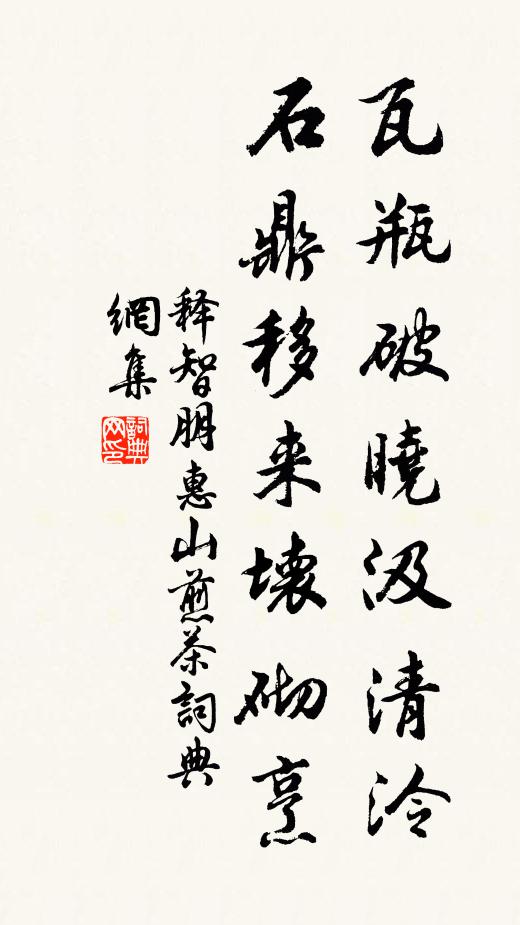 瓦瓶破曉汲清泠
石鼎移来壞砌烹
释智朋惠山煎茶詞典
網集
詞典
网印